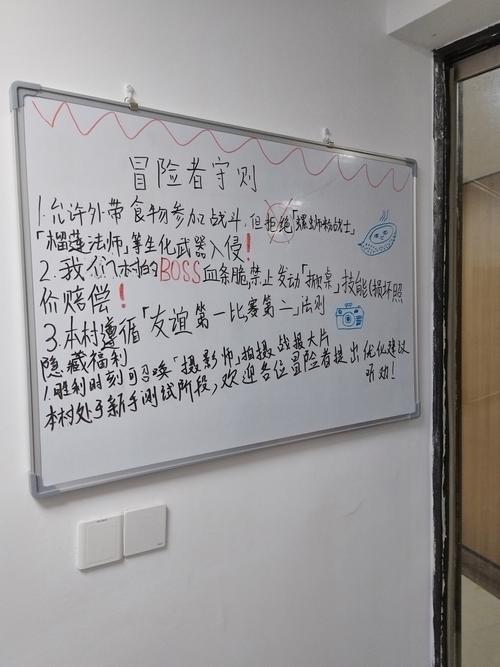 冒险者守则
1.允许外带食物参加战斗,但拒绝「螺蛳粉战士」
「榴莲法师」等生化武器入侵!
2.我们本柏的BOSS血条脆,禁止发动「掀桌」技能(损坏照
价赔偿!
3.本村遵循「友谊第一比赛第二」法则
隐藏福利
1.胜利时刻可召唤「摄影师」拍摄战报大片
本村处于新手测试阶段,欢迎各位冒险者提出优化建议
听劝!